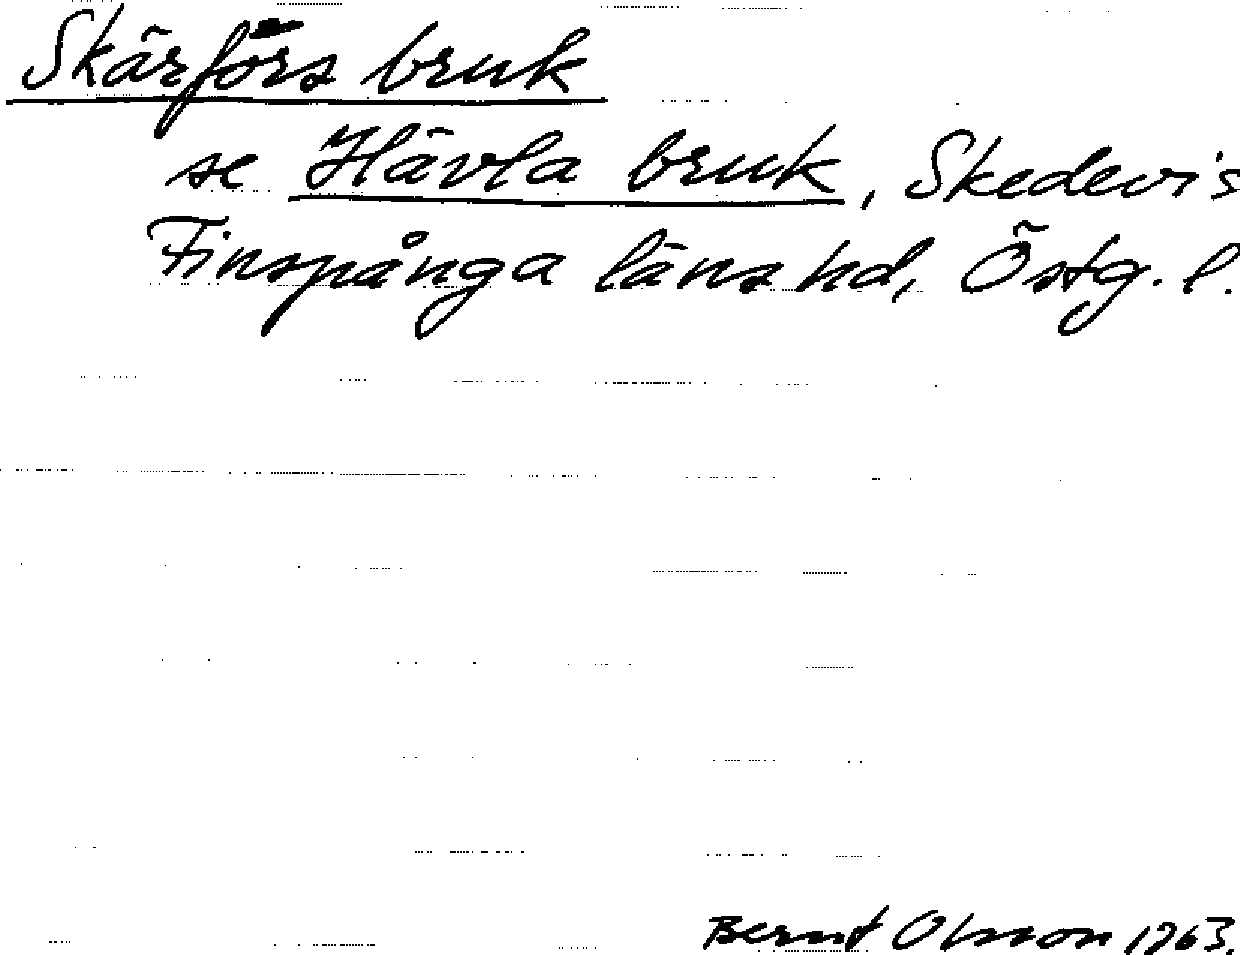 Skärförs bruk
se Hävla bruk, Skedevis
Finspånga läns hd, Östg. l.
Bernt Olsson 1963.